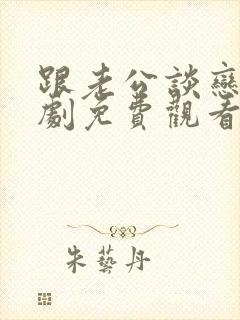 跟老公談戀
劇免費觀看
朱藝丹